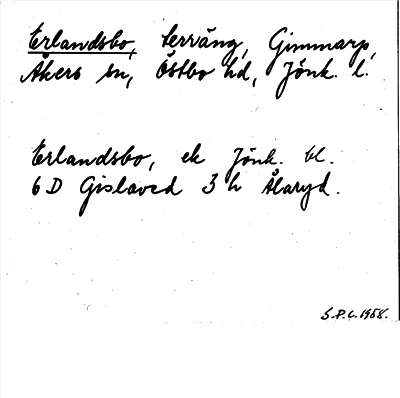 Erlandsbo, terräng, Gimmarp,
Åkers sn, Östbo hd, Jönk. l.
Erlandsbo, ek Jönk. bl.
6 D Gislaved 3 h Ålaryd.
S.P.C. 1958.